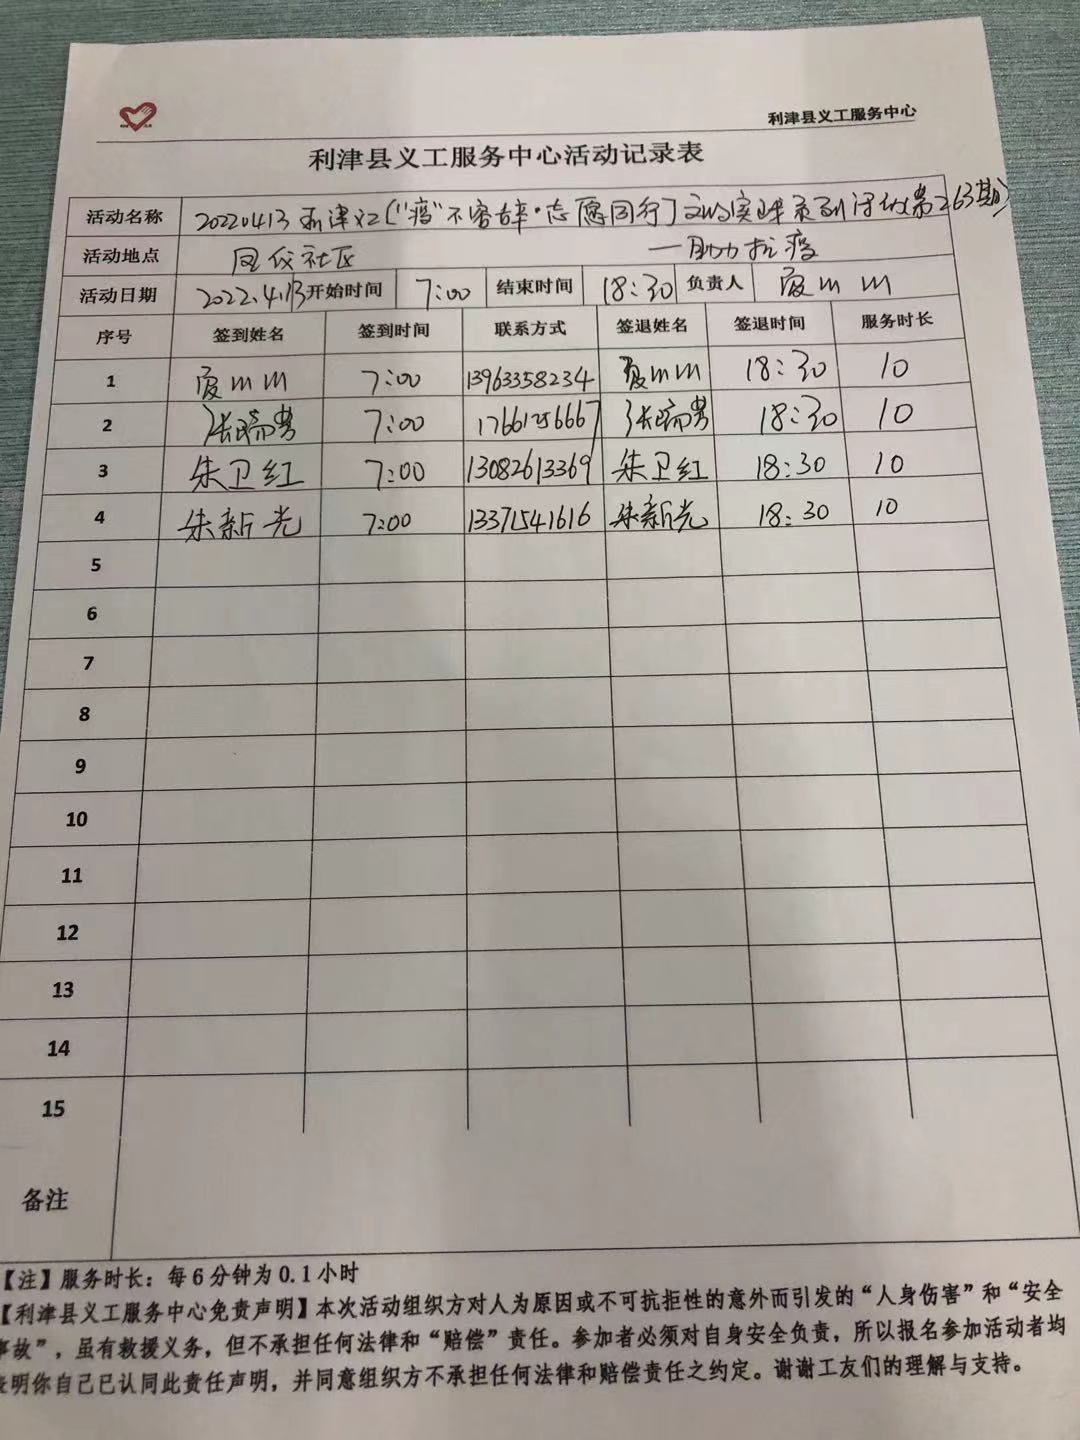 利津县义工服务中心
利津县义工服务中心活动记录表
活动名称 20220413利津社["疫"不容辞·志愿同行]文明实践系列活动(第263期)
——助力抗疫
活动地点 社区
活动日期 2022.4.13 开始时间 7:00 结束时间 18:30 负责人
序号 签到姓名 签到时间 联系方式 签退姓名 签退时间 服务时长
1 7:00 13963358234 18:30 10
2 张瑞 7:00 张瑞 18:30 10
3 朱卫红 7:00 13082613369 朱卫红 18:30 10
4 朱新光 7:00 13371541616 朱新光 18:30 10
5
6
7
8
9
10
11
12
13
14
15
备注
【注】服务时长：每6分钟为0.1小时
【利津县义工服务中心免责声明】本次活动组织方对人为原因或不可抗拒性的意外而引发的“人身伤害”和“安全
事故”，虽有救援义务，但不承担任何法律和“赔偿”责任。参加者必须对自身安全负责，所以报名参加活动者均
表明你自己已认同此责任声明，并同意组织方不承担任何法律和赔偿责任之约定。谢谢工友们的理解与支持。